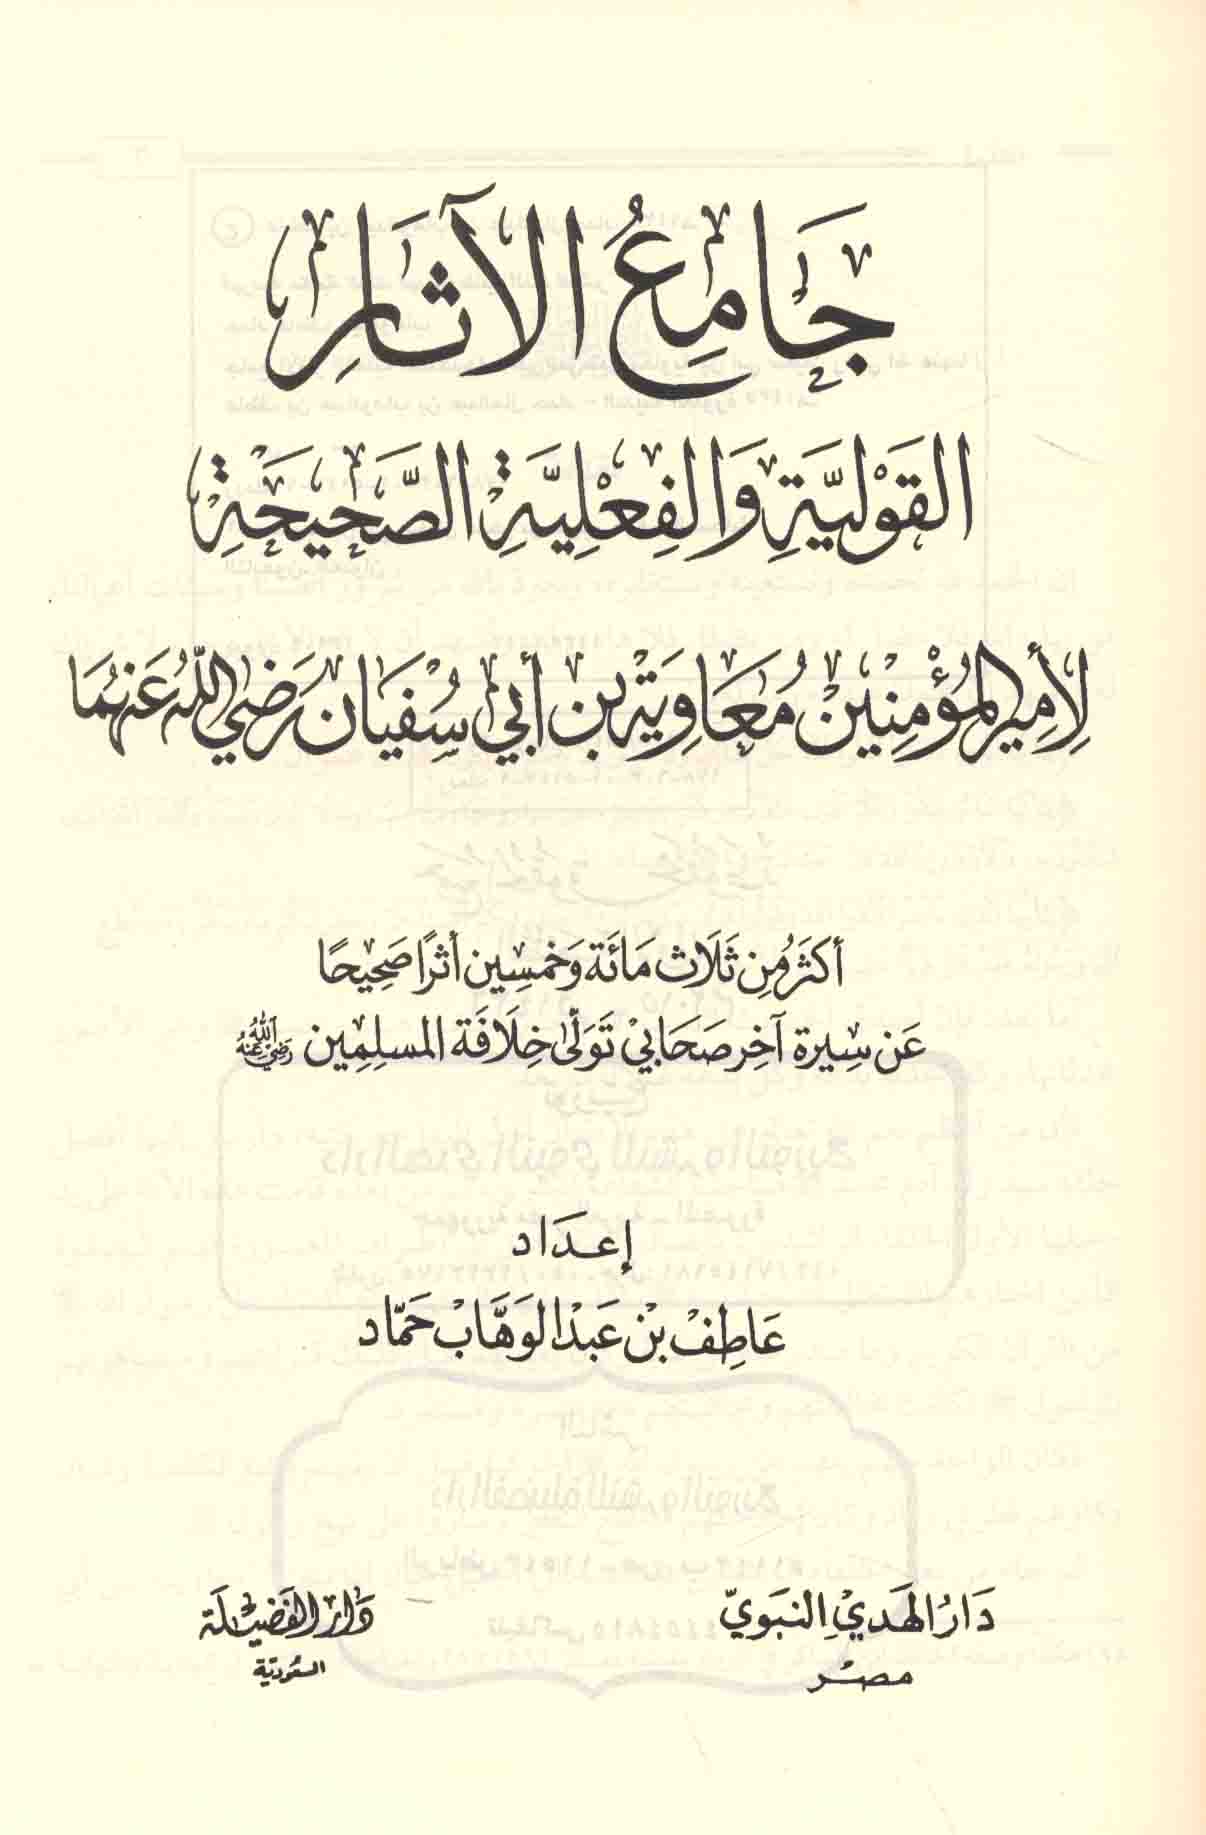 جَامِعُ الآثَارِ
القَوْلِيَّةِ وَالفِعْلِيَّةِ الصَّحِيحَةِ
لِأَمِيرِ المُؤْمِنِينْ مُعَاوِيَة بن أبي سُفْيَان رَضِيَ اللهُ عَنْهُمَا
أكثَرُ مِن ثَلَاث مَائَة وَخمسِين أثرًا صَحِيحًا
عَن سِيرة آخِر صَحَابي تَوَلَّى خِلَافَة المسلِمِين رَضِيَ اللهُ عَنْهُ
إعدَاد
عَاطِفْ بْن عَبْد الوَهَّابْ حَمَّاد
دَارُ الهَديِ النَبَويّ
مصْر
دَارُ الفَضِيْلَة
السعودية